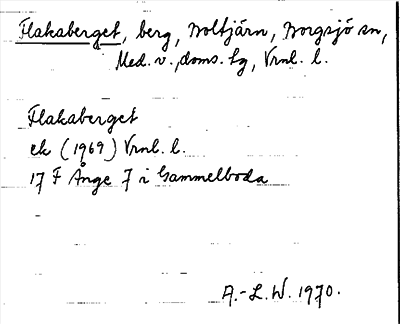 Flakaberget, berg, Boltjärn, Borgsjö sn,
Med. v. doms. tg, Vrnl. l.
Flakaberget
ek (1969) Vrnl. l.
17 F Ånge 7 i Gammelboda
A.-L.W. 1970.